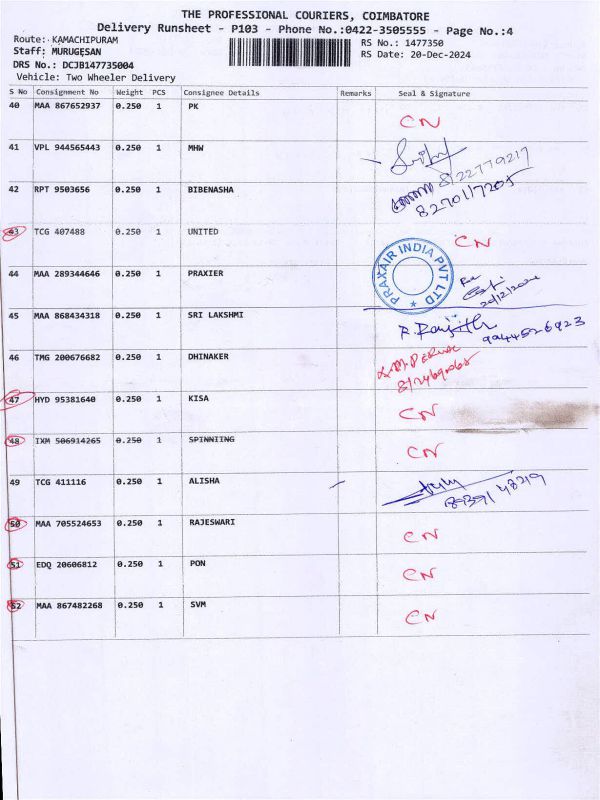 THE PROFESSIONAL COURIERS, COIMBATORE
Delivery Runsheet - P103 - Phone No.:0422-3505555 - Page No.:4
Route: KAMACHIPURAM
RS No.: 1477350
Staff: MURUGESAN
RS Date: 20-Dec-2024
DRS No.: DCJB147735004
Vehicle: Two Wheeler Delivery
S No Consignment No Weight PCS Consignee Details Remarks Seal & Signature
40 MAA 867652937 0.250 1 PK CN
41 VPL 944565443 0.250 1 MHW
8122779217
42 RPT 9503656 0.250 1 BIBENASHA
8270117205
43 TCG 407488 0.250 1 UNITED CN
44 MAA 289344646 0.250 1 PRAXIER
PRAXAIR INDIA PVT LTD
20/12/2024
45 MAA 868434318 0.250 1 SRI LAKSHMI
R. Ranjith
9944526923
46 TMG 200676682 0.250 1 DHINAKER
47 HYD 95381640 0.250 1 KISA CN
48 IXM 506914265 0.250 1 SPINNIING CN
49 TCG 411116 0.250 1 ALISHA
50 MAA 705524653 0.250 1 RAJESWARI CN
51 EDQ 20606812 0.250 1 PON CN
52 MAA 867482268 0.250 1 SVM CN